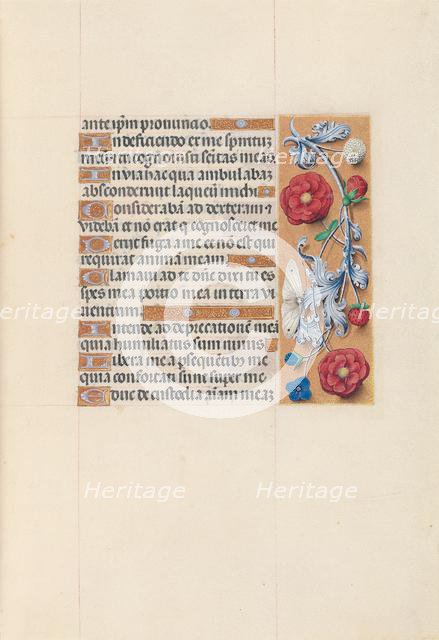 ante ip̄m pronuncio.
In deficiendo ex me spiritū
meū: et tu cognouisti semitas meas
In via hac qua ambulabā
absconderunt laqueū michi
Considerabā ad dexteram ⁊
videbā: et non erat q̄ cognosceret me
Perijt fuga a me: et non est qui
requirat animā meam
Clamaui ad te dn̄e: dixi tu es
spes mea portio mea in terra vi
uentium
Intende ad deprecationē meā
quia humiliatus sum nimis
Libera me a p̄sequentib; me
quia confortati sunt super me
Educ de custodia aīam meā
Heritage
Heritage
Heritage
Heritage
Heritage
Heritage